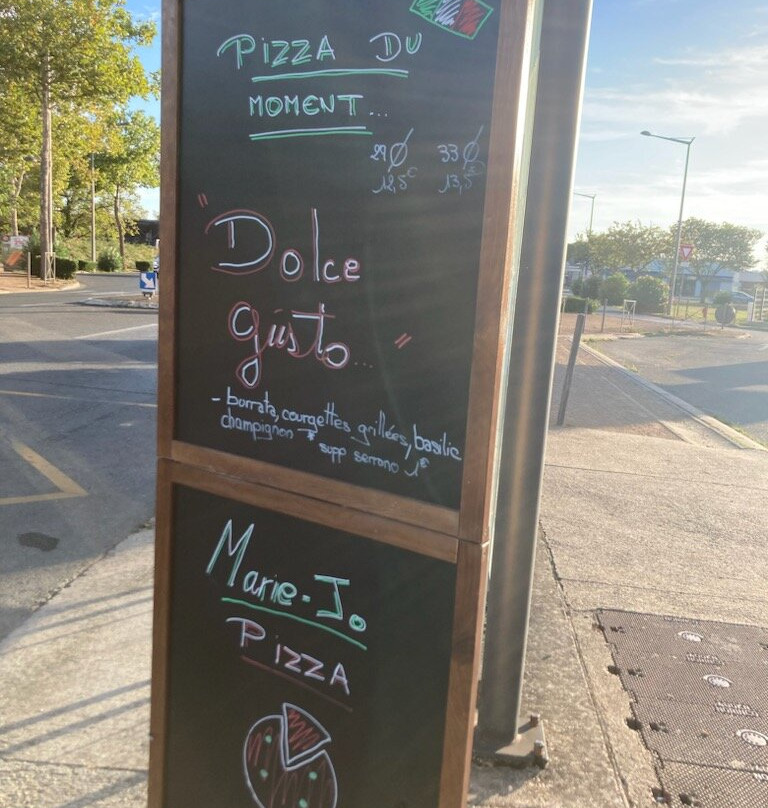 PIZZA DU
MOMENT...
29 Ø 33 Ø
12,5€ 13,5€
"Dolce
gusto..."
- burrata, courgettes grillées, basilic
champignon
* supp serrano 1€
Marie-Jo
PIZZA